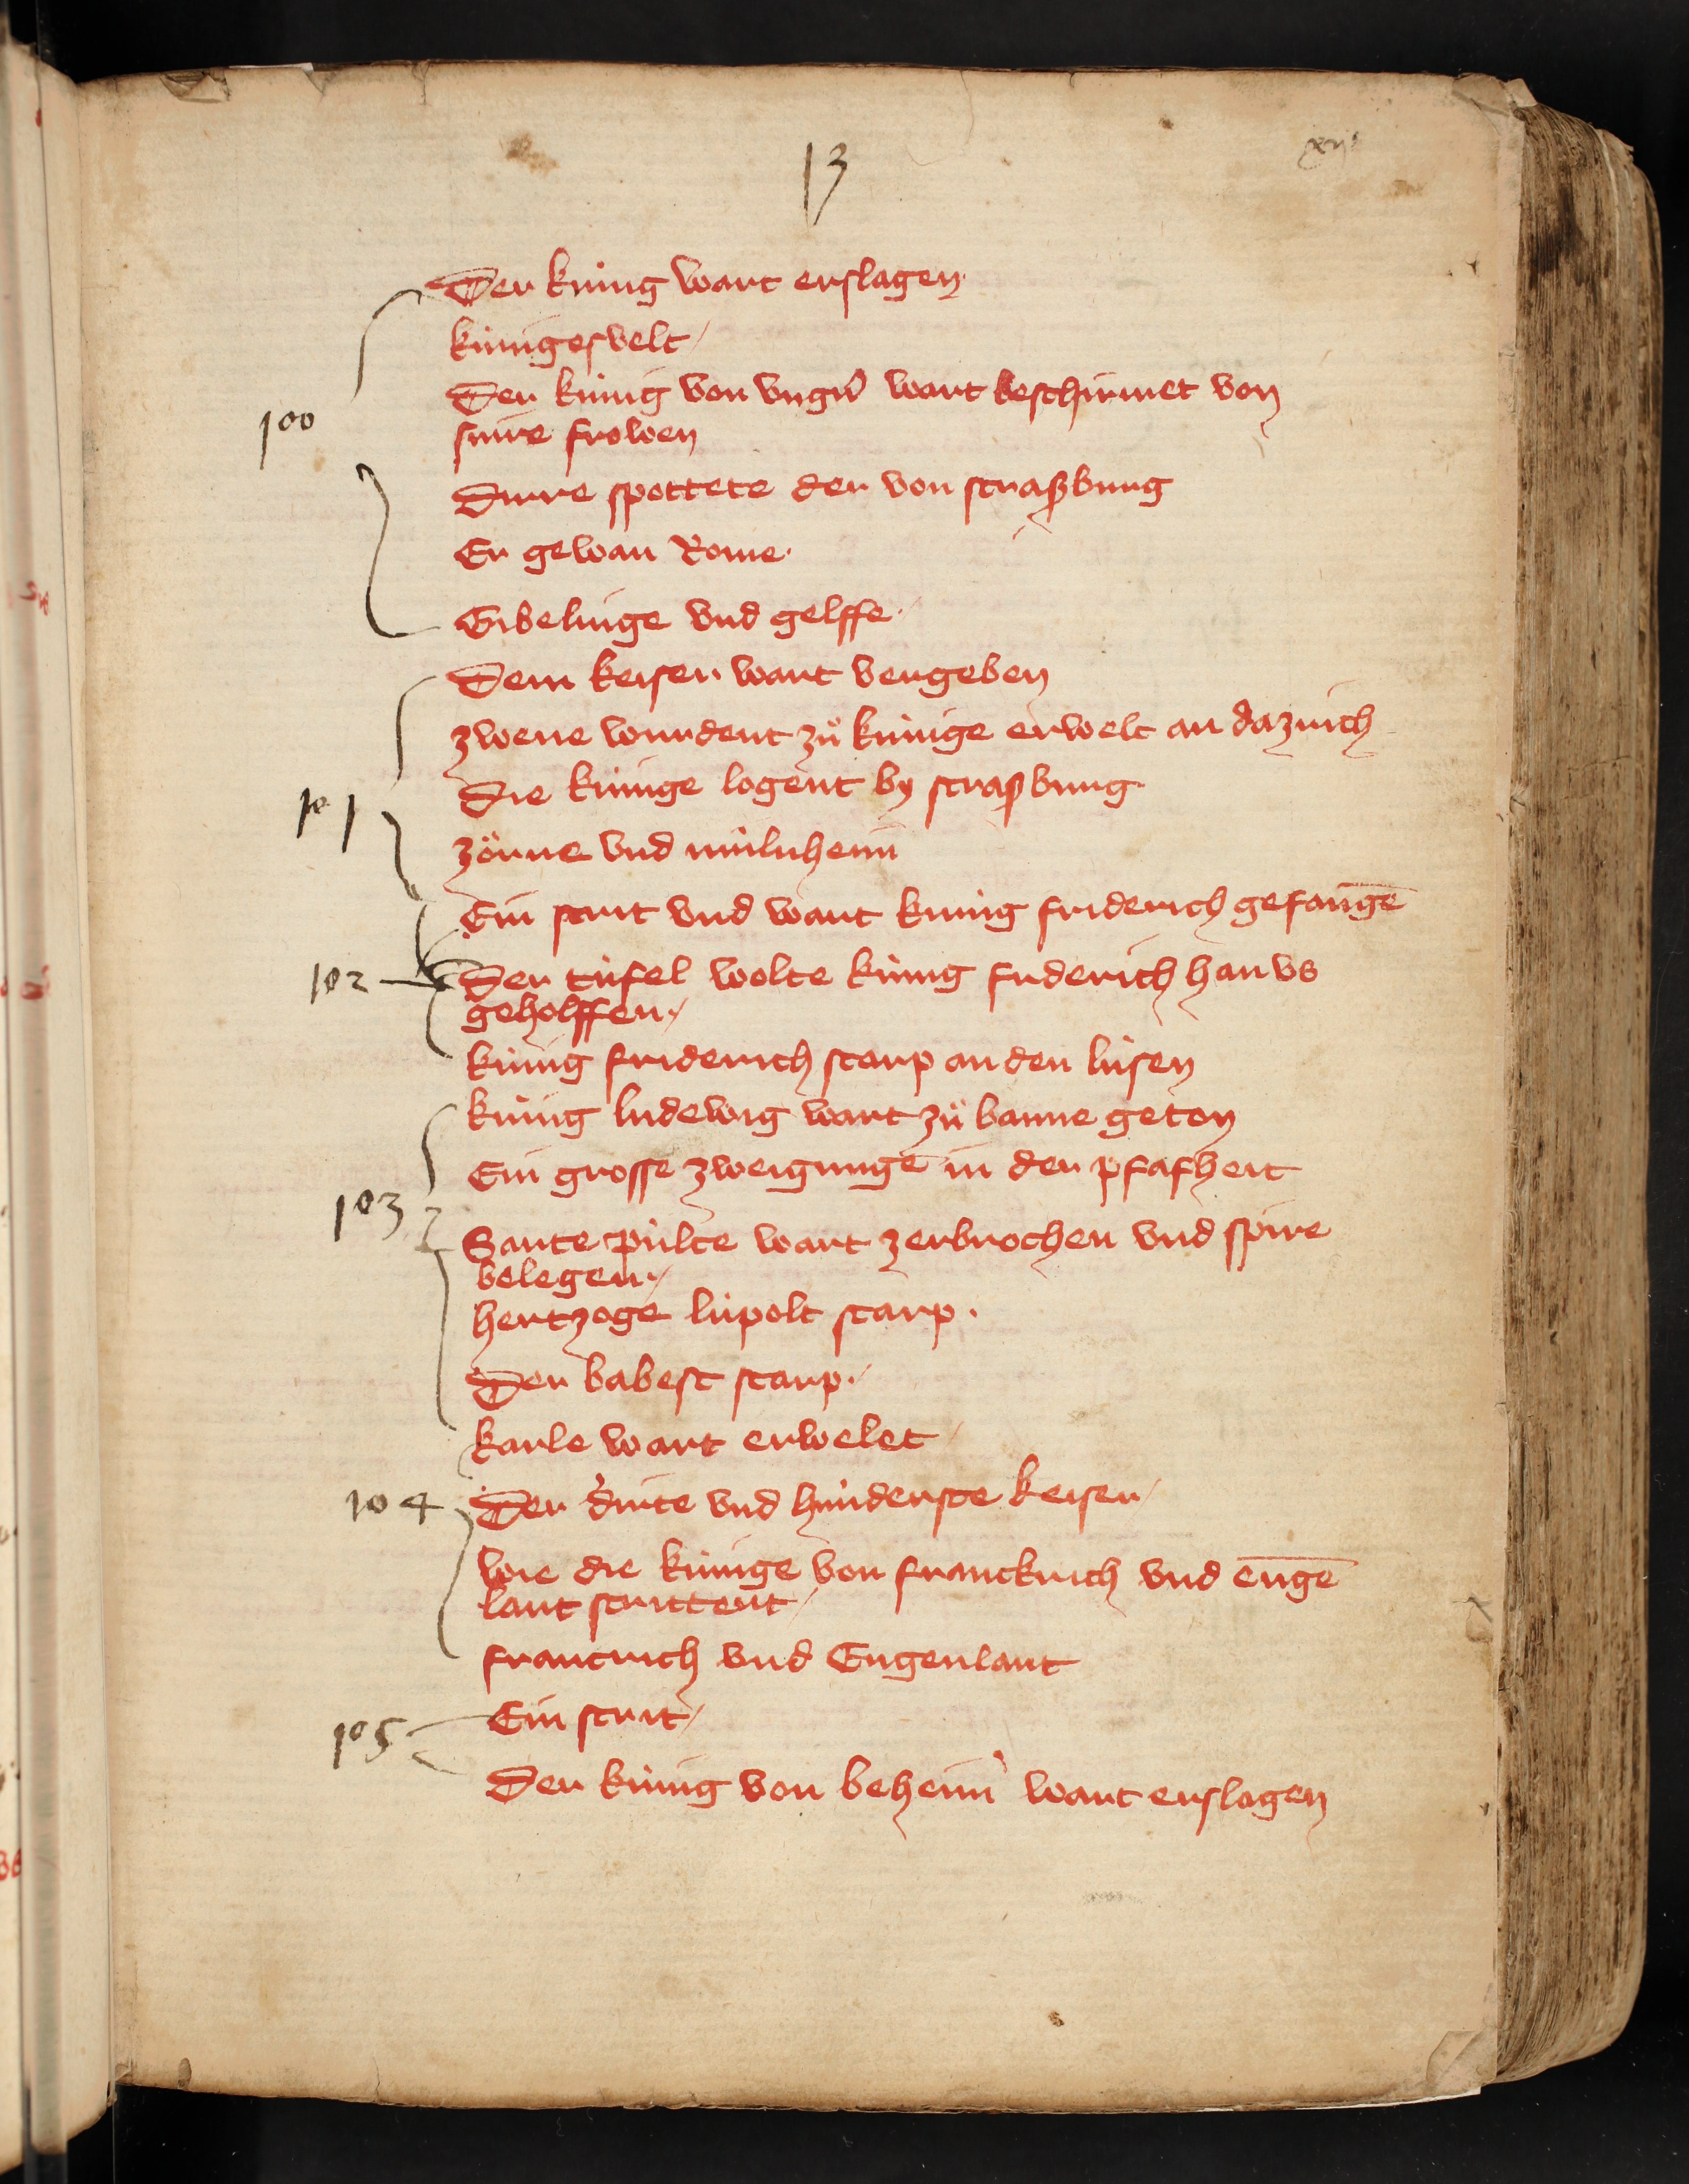 13
xij
Der kúnig wart erslagen.
kúnigesvelt /
100
Der kúnig von vngern wart beschirmet von
sinre frowen
Dirre spottete der von straßburg
Er gewan Rome.
Gibelinge vnd gelffe /
Dem keiser wart vergeben
zwene wurdent zů kúnige erwelt an dazrich
101
Die kúnige logent by straßburg
zörne vnd múlnheim
Ein strit vnd wart kúnig friderich gefangē
102
Der túfel wolte kúnig friderich han vs
geholffen /
kúnig friderich starp an den lúsen
kúnig ludewig wart zů banne geton
Ein grosse zweigunge in der pfafheit
103
Sante púlte wart zerbrochen vnd spire
belegen /
hertzoge lúpolt starp.
Der babest starp /
karle wart erwelet /
104
Der dirte vnd hunderste keiser /
wie die kúnige von franckrich vnd engē
lant strittent /
francrich vnd Engenlant
105
Ein strit /
Der kúnig von beheim wart erslagen